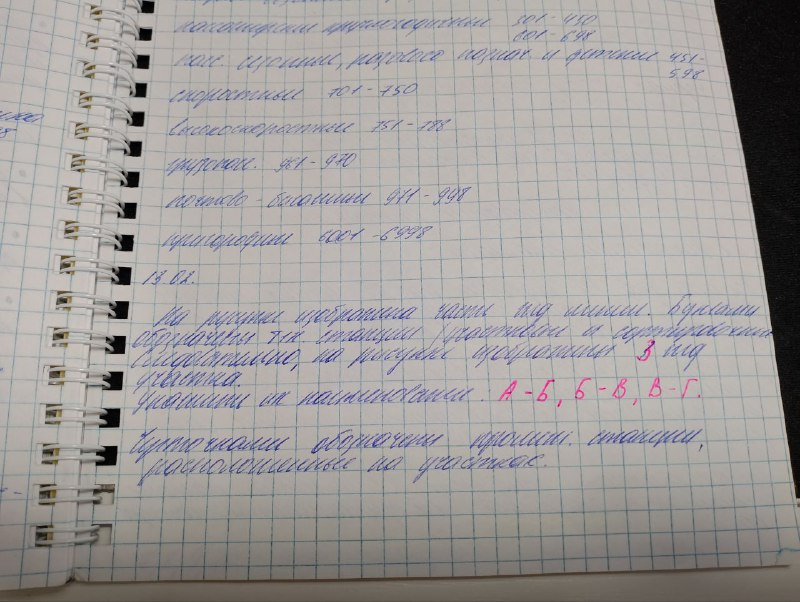 пассажирские круглогодичные 301 - 450
601 - 698
пасс сезонные, разового назнач и детские 451 -
598
скоростные 701 - 750
высокоскоростные 751 - 788
грузопас. 951 - 970
почтово - багажные 971 - 998
пригородные 6001 - 6998
13.02.
На рисунке изображена часть жд линии. Буквами
обозначены тех. станции (участковые и сортировочные
Следовательно, на рисунке изображены 3 жд
участка.
Укажите их наименования. А - Б, Б - В, В - Г.
Черточками обозначены промеж. станции,
расположенные на участках.